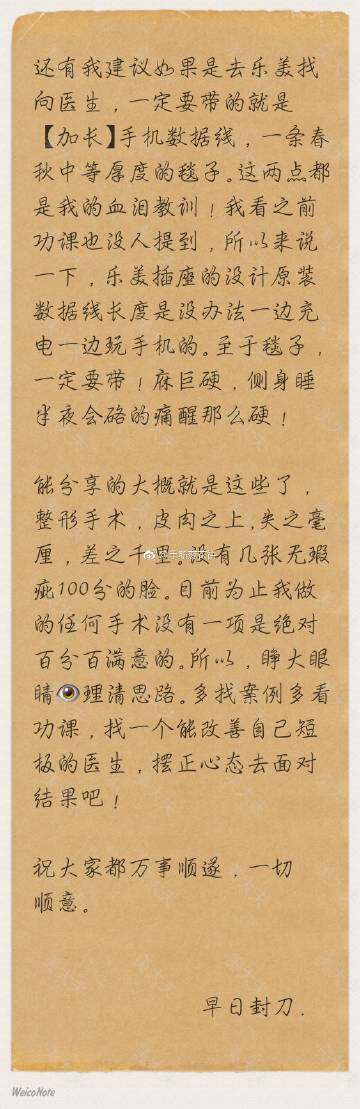 还有我建议如果是去乐美找
向医生，一定要带的就是
【加长】手机数据线，一条春
秋中等厚度的毯子。这两点都
是我的血泪教训！我看之前
功课也没人提到，所以来说
一下，乐美插座的设计原装
数据线长度是没办法一边充
电一边玩手机的。至于毯子，
一定要带！床巨硬，侧身睡
半夜会硌的痛醒那么硬！
能分享的大概就是这些了，
整形手术，皮肉之上，失之毫
厘，差之千里。没有几张无瑕
疵100分的脸。目前为止我做
的任何手术没有一项是绝对
百分百满意的。所以，睁大眼
睛👁理清思路。多找案例多看
功课，找一个能改善自己短
板的医生，摆正心态去面对
结果吧！
祝大家都万事顺遂，一切
顺意。
早日封刀.
WeicoNote